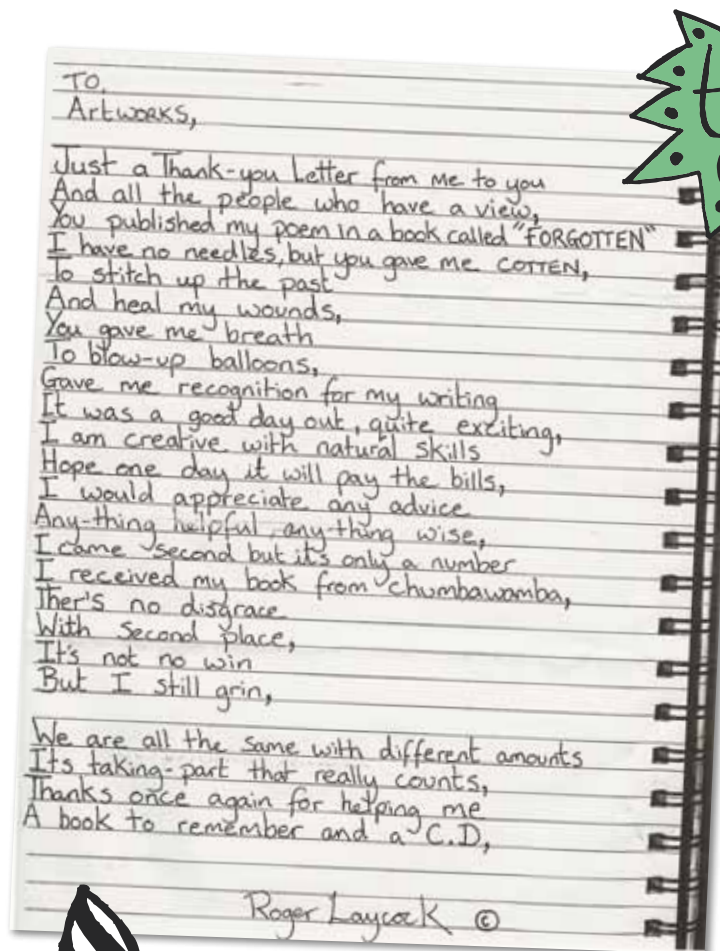 TO,
Artworks,
Just a Thank-you Letter from me to you
And all the people who have a view,
You published my poem in a book called "FORGOTTEN"
I have no needles, but you gave me COTTEN,
To stitch up the past
And heal my wounds,
You gave me breath
To blow-up balloons,
Gave me recognition for my writing
It was a good day out, quite exciting,
I am creative with natural skills
Hope one day it will pay the bills,
I would appreciate any advice
Any-thing helpful, any-thing wise,
I came second but it's only a number
I received my book from chumbawamba,
Ther's no disgrace
With second place,
It's not no win
But I still grin,
We are all the same with different amounts
Its taking-part that really counts,
Thanks once again for helping me
A book to remember and a C.D,
Roger Laycock ©